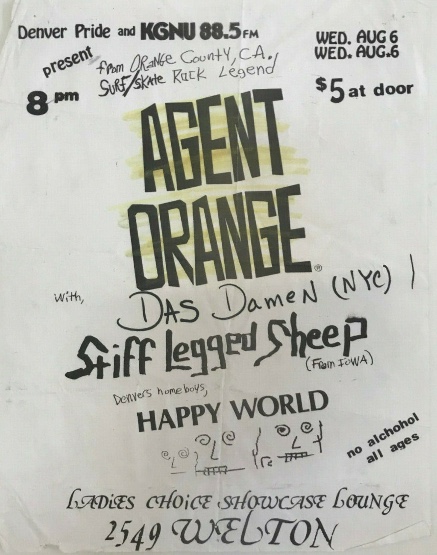 Denver Pride and KGNU 88.5 FM
WED. AUG 6
WED. AUG.6
present
from ORANGE COUNTY, CA.!
SURF/SKATE ROCK LEGEND
8 pm
$5 at door
AGENT
ORANGE®
with,
DAS DAMEN (NYC)
Stiff Legged Sheep
(From IOWA)
Denvers homeboys,
HAPPY WORLD
no alchohol
all ages
LADIES CHOICE SHOWCASE LOUNGE
2549 WELTON